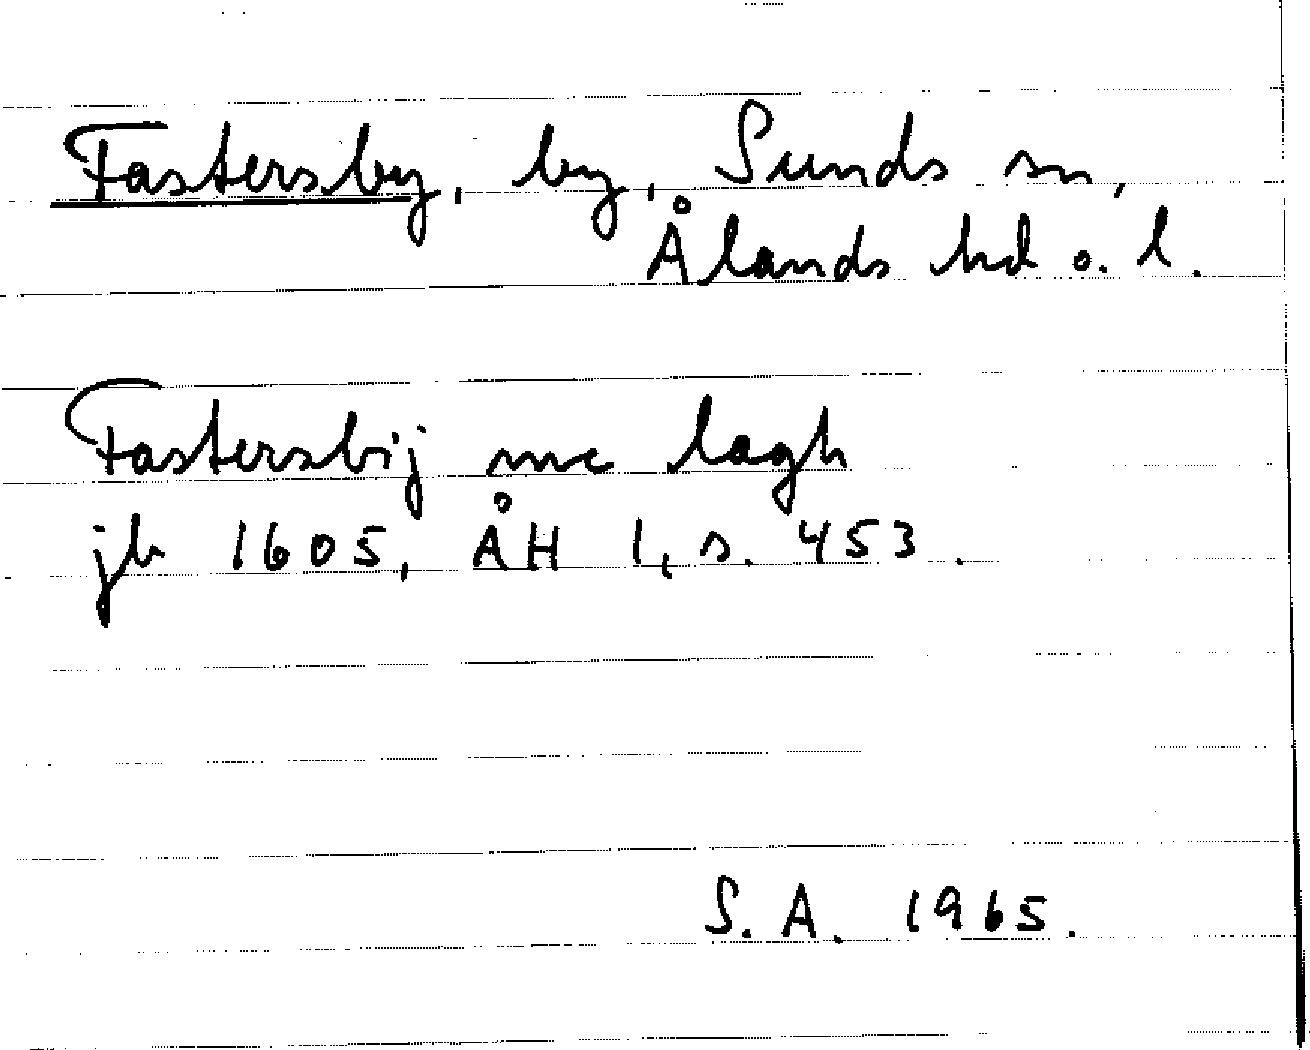 Fastersby, by, Sunds sn,
Ålands hd o. l.
Fastersbij mc lagh
jb 1605, ÅH 1, s. 453.
S. A. 1965.